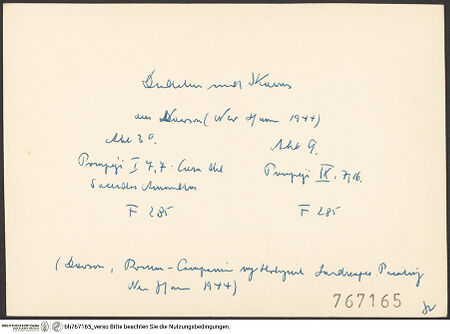 Dädalus und Ikarus
aus Dawson (New Haven 1944)
Abb 3a. Abb 9.
Pompeji I 7,7. Casa del Pompeji IX. 7,16.
Sacerdos Amandus
F 285 F 285
(Dawson, Roman-Campanian mythological Landscape Painting
New Haven 1944)
767165
bh767165_verso Bitte beachten Sie die Nutzungsbedingungen.